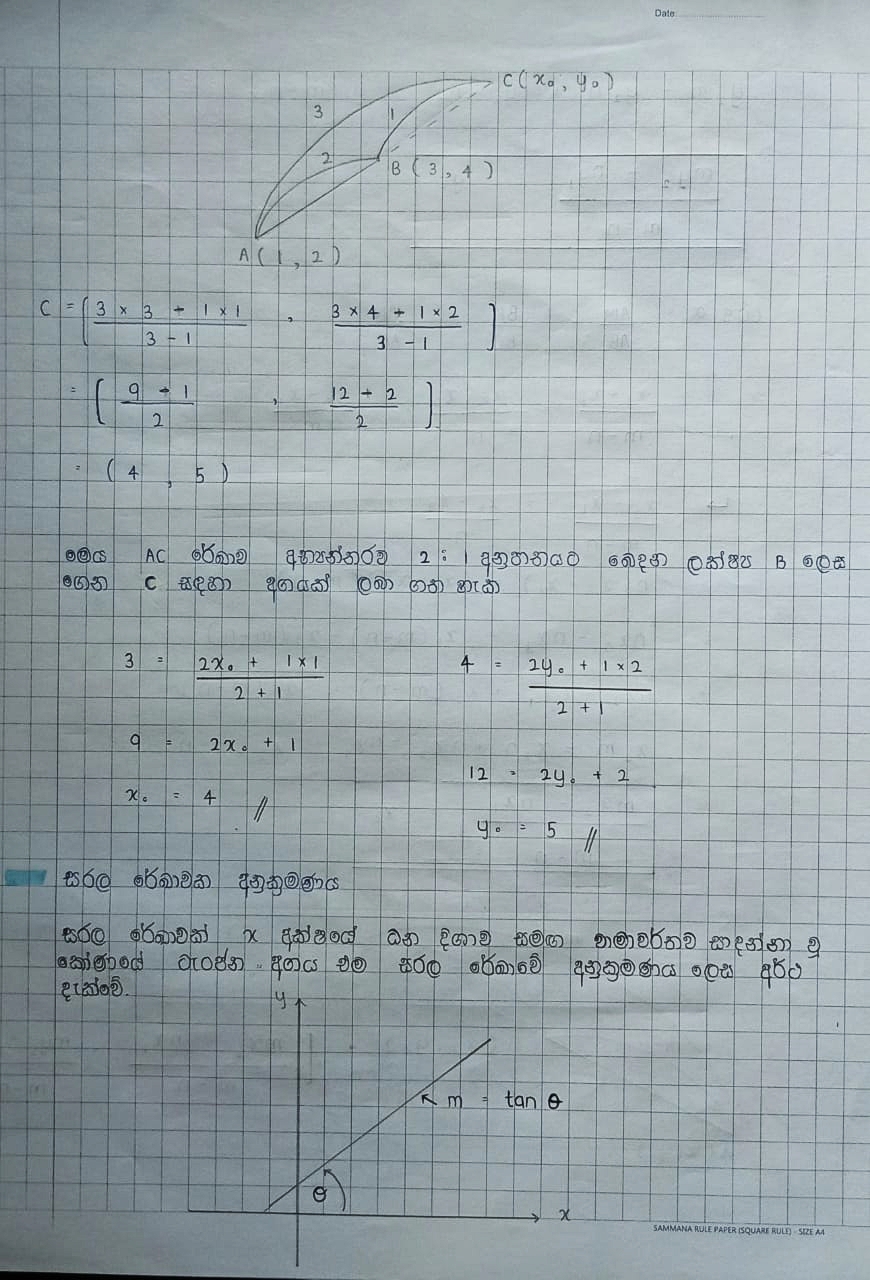 Date:
C ( x₀ , y₀ )
3
1
2
B ( 3 , 4 )
A ( 1 , 2 )
C = [ (3 × 3 - 1 × 1) / (3 - 1) , (3 × 4 - 1 × 2) / (3 - 1) ]
= [ (9 - 1) / 2 , (12 - 2) / 2 ]
= ( 4 , 5 )
මෙය AC රේඛාව අභ්‍යන්තරව 2 : 1 අනුපාතයට බෙදන ලක්ෂ්‍ය B ලෙස
ගෙන C සඳහා අගයක් ලබා ගත හැක
3 = (2x₀ + 1 × 1) / (2 + 1)
4 = (2y₀ + 1 × 2) / (2 + 1)
9 = 2x₀ + 1
12 = 2y₀ + 2
x₀ = 4 //
y₀ = 5 //
සරල රේඛාවක අනුක්‍රමණය
සරල රේඛාවක් x අක්ෂයේ ධන දිශාව සමඟ වාමාවර්තව සාදන්නා වූ
කෝණයේ ටැංජන අගය එම සරල රේඛාවේ අනුක්‍රමණය ලෙස අර්ථ
දැක්වේ.
y
m = tan θ
θ
x
SAMMANA RULE PAPER (SQUARE RULE) - SIZE A4